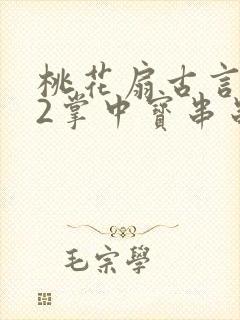 桃花扇古言
2掌中寳串
毛宗學